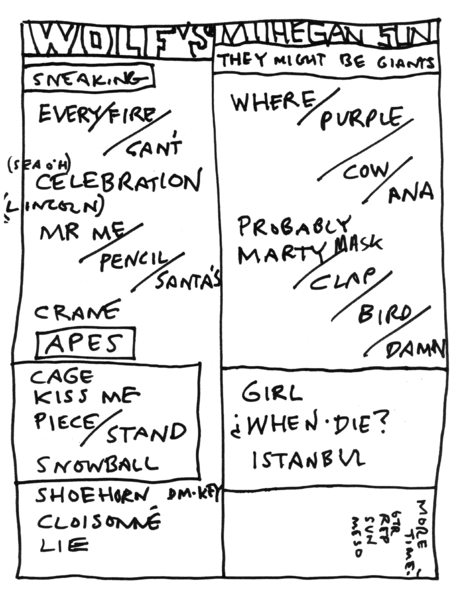 WOLF'S
SNEAKING
EVERY/FIRE/
CAN'T
(SEAOH)
CELEBRATION
(LINCOLN)
MR ME/
PENCIL/
SANTA'S
CRANE
APES
CAGE
KISS ME
PIECE/
STAND
SNOWBALL
SHOEHORN DM-KEY
CLOISONNÉ
LIE
MOHEGAN SUN
THEY MIGHT BE GIANTS
WHERE/
PURPLE/
COW/
ANA
PROBABLY
MARTY/MASK
CLAP/
BIRD/
DAMN
GIRL
¿WHEN·DIE?
ISTANBUL
MORE TIME:
GTR
REP
SUN
MESO